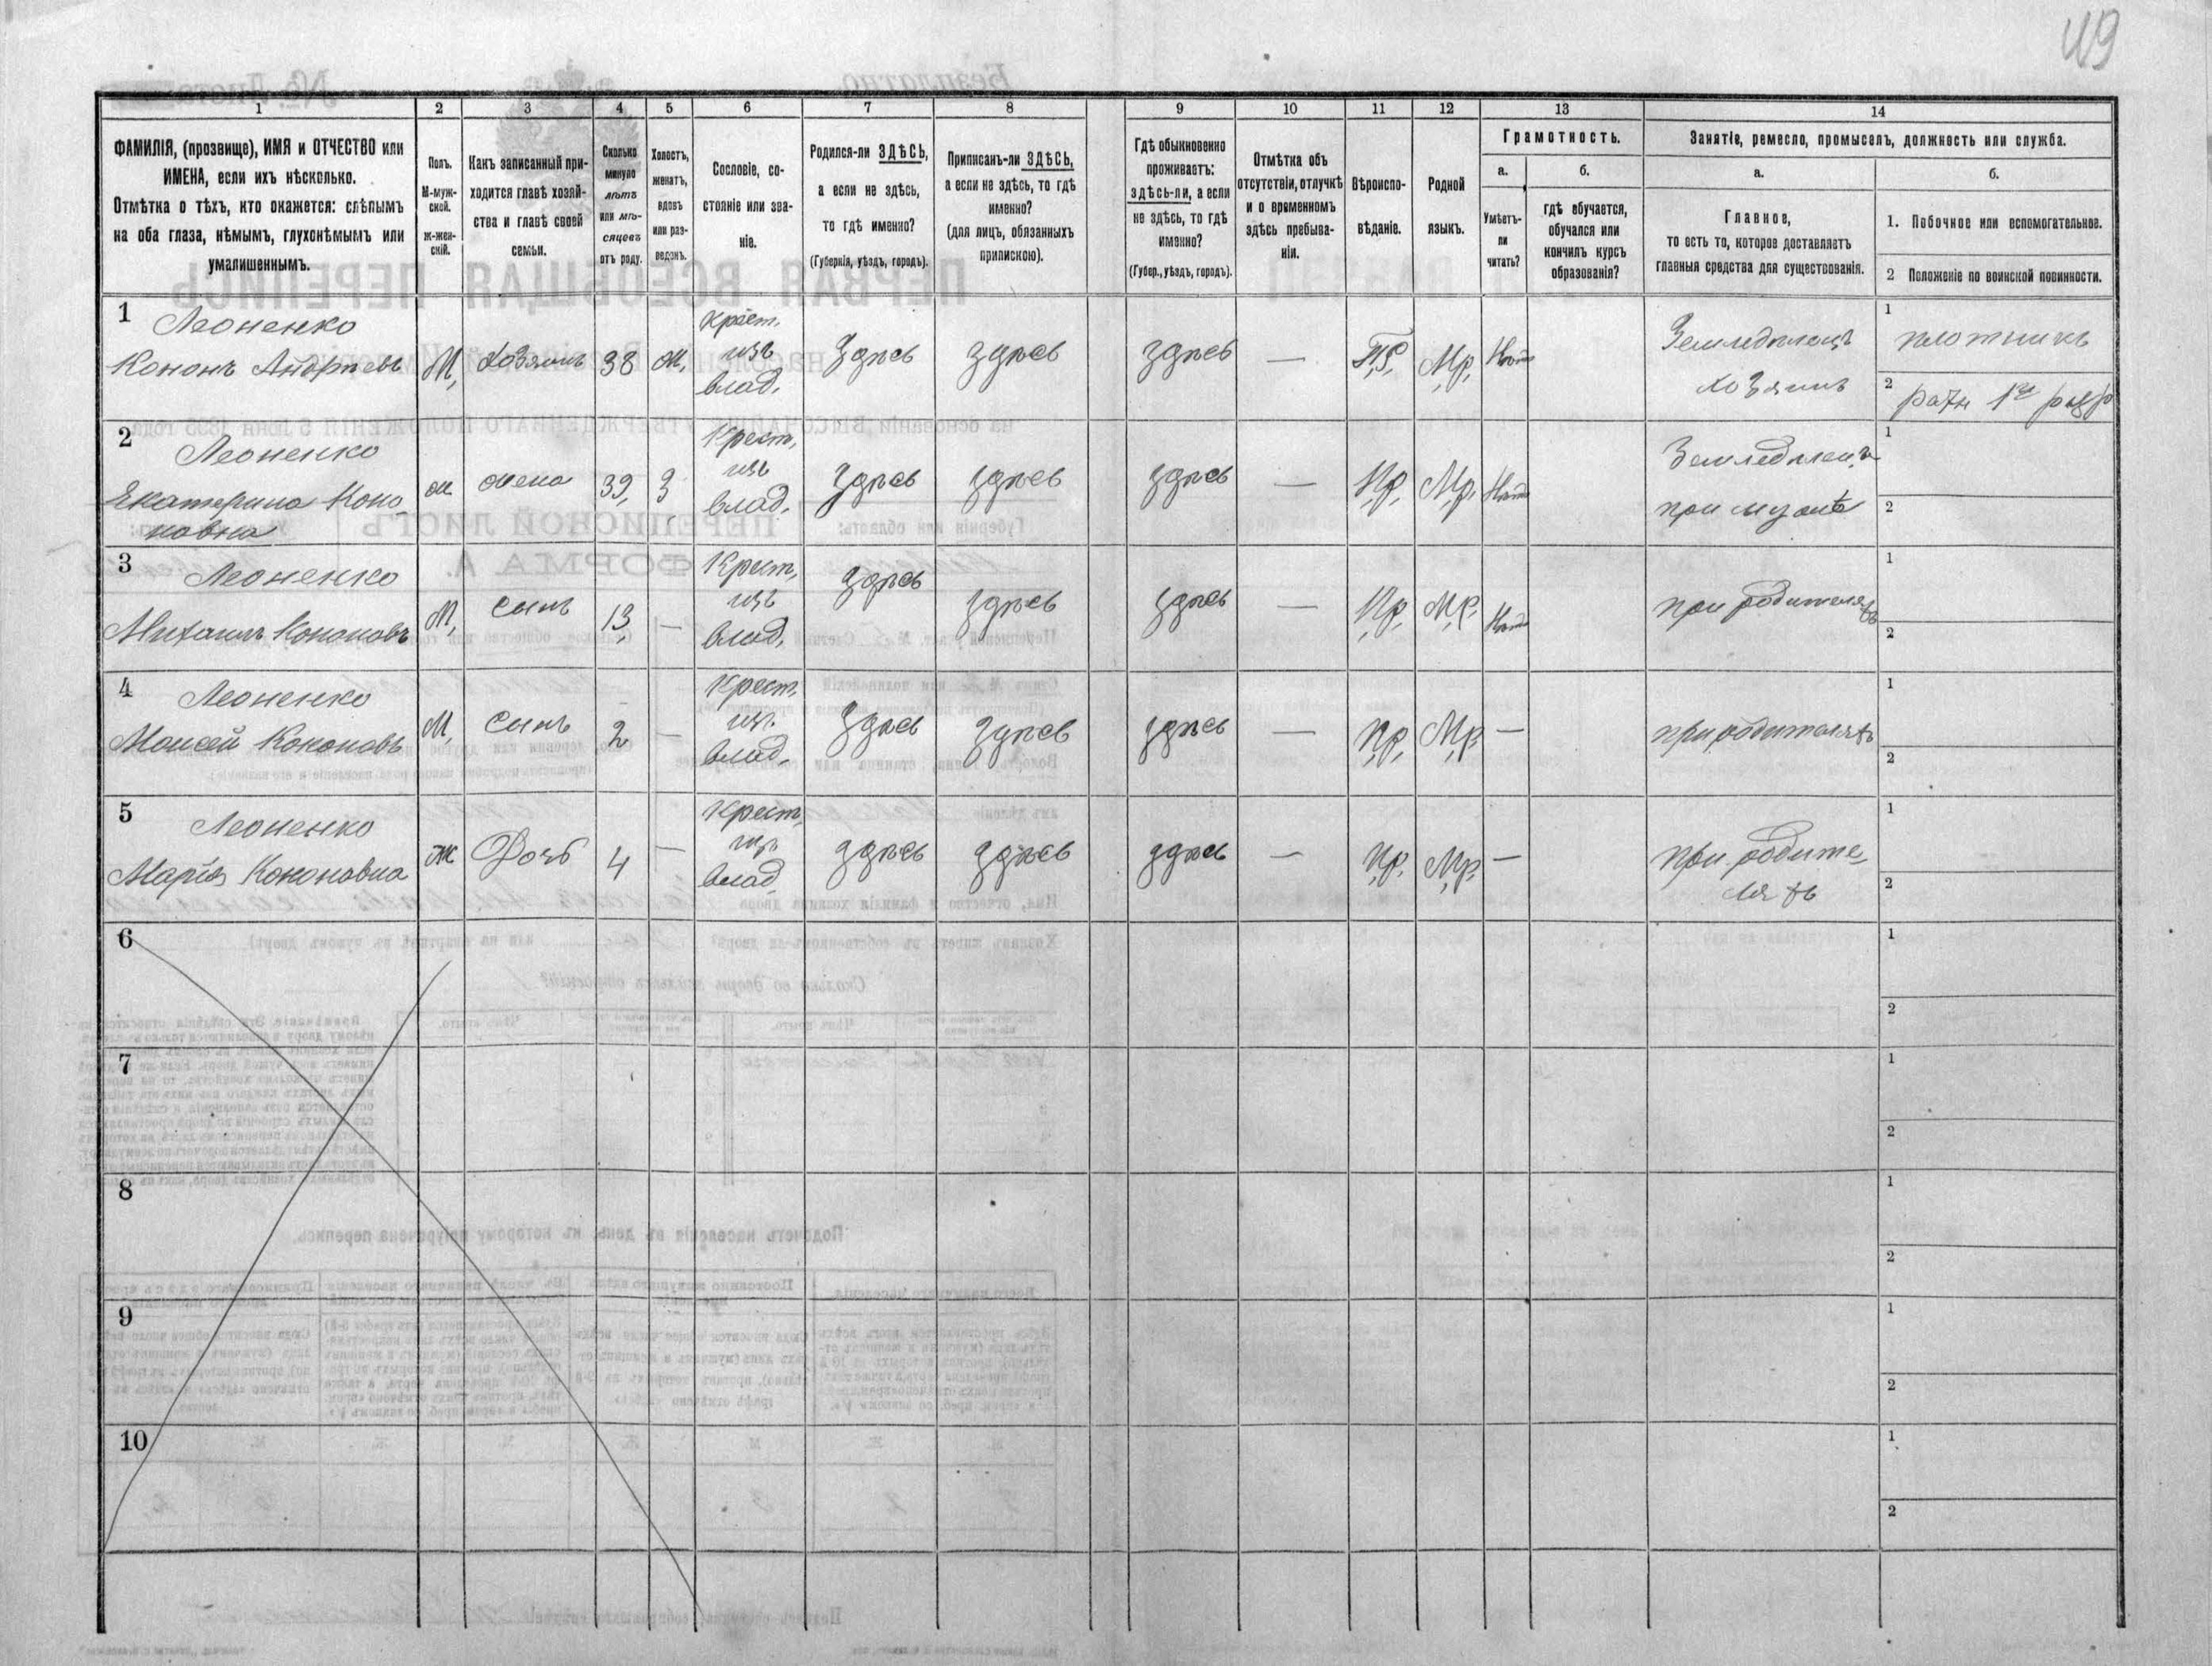 49
1
2
3
4
5
6
7
8
9
10
11
12
13
14
ФАМИЛІЯ, (прозвище), ИМЯ и ОТЧЕСТВО или
ИМЕНА, если ихъ нѣсколько.
Отмѣтка о тѣхъ, кто окажется: слѣпымъ
на оба глаза, нѣмымъ, глухонѣмымъ или
умалишеннымъ.
Полъ.
М-муж-
ской.
Ж-жен-
скій.
Какъ записанный при-
ходится главѣ хозяй-
ства и главѣ своей
семьи.
Сколько
минуло
лѣтъ
или мѣ-
сяцевъ
отъ роду.
Холостъ,
женатъ,
вдовъ
или раз-
веденъ.
Сословіе, со-
стояніе или зва-
ніе.
Родился-ли ЗДѢСЬ,
а если не здѣсь,
то гдѣ именно?
(Губернія, уѣздъ, городъ).
Приписанъ-ли ЗДѢСЬ,
а если не здѣсь, то гдѣ
именно?
(для лицъ, обязанныхъ
припискою).
Гдѣ обыкновенно
проживаетъ:
здѣсь-ли, а если
не здѣсь, то гдѣ
именно?
(Губер., уѣздъ, городъ).
Отмѣтка объ
отсутствіи, отлучкѣ
и о временномъ
здѣсь пребыва-
ніи.
Вѣроиспо-
вѣданіе.
Родной
языкъ.
Грамотность.
а.
Умѣетъ-
ли
читать?
б.
гдѣ обучается,
обучался или
кончилъ курсъ
образованія?
Занятіе, ремесло, промыселъ, должность или служба.
а.
Главное,
то есть то, которое доставляетъ
главныя средства для существованія.
б.
1. Побочное или вспомогательное.
2 Положеніе по воинской повинности.
1 Леоненко
Кононъ Андреевъ
М,
Хозяинъ
38
ж,
Крест.
изъ
влад.
Здѣсь
здѣсь
здѣсь
—
Пр,
Мр,
Нѣтъ
Земледѣлецъ
хозяинъ
1 плотникъ
2 ратн 1го разр
2 Леоненко
Екатерина Коно-
новна
ж
жена
39,
З
Крест,
изъ
влад.
Здѣсь
здѣсь
здѣсь
—
Пр,
Мр,
Нѣтъ
Земледѣлец.
при мужѣ
1
2
3 Леоненко
Михаилъ Кононовъ
М,
сынъ
13,
—
Крест,
изъ
влад,
Здѣсь
здѣсь
здѣсь
—
Пр,
Мр,
Нѣтъ
при родителяхъ
1
2
4 Леоненко
Моисей Кононовъ
М,
сынъ
2
—
Крест,
из.
влад.
Здѣсь
здѣсь
здѣсь
—
Пр,
Мр,
—
при родителяхъ
1
2
5 Леоненко
Марія Кононовна
ж
Дочь
4
—
Крест,
из.
влад.
здѣсь
здѣсь
здѣсь
—
Пр.
Мр,
—
при родите-
ляхъ
1
2
6
1
2
7
1
2
8
1
2
9
1
2
10
1
2